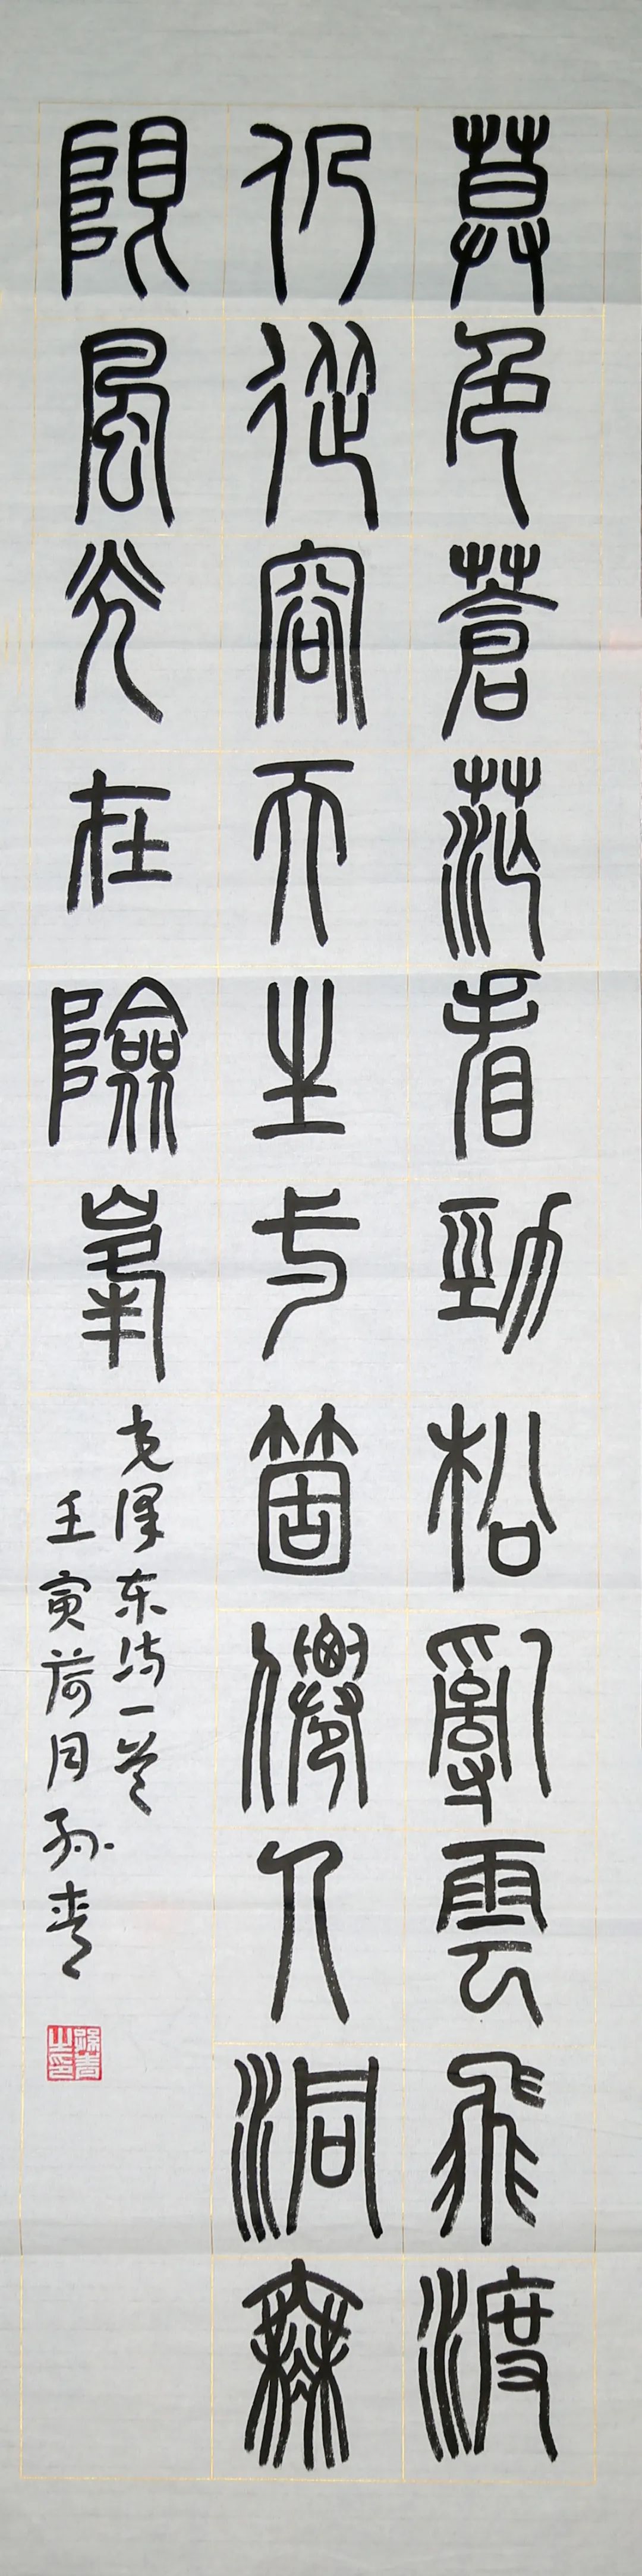 莫色蒼茫看勁松亂雲飛渡
仍從容天生一箇僊人洞無
限風光在險峯
毛泽东诗一首
壬寅荷月孙青
孫青之印